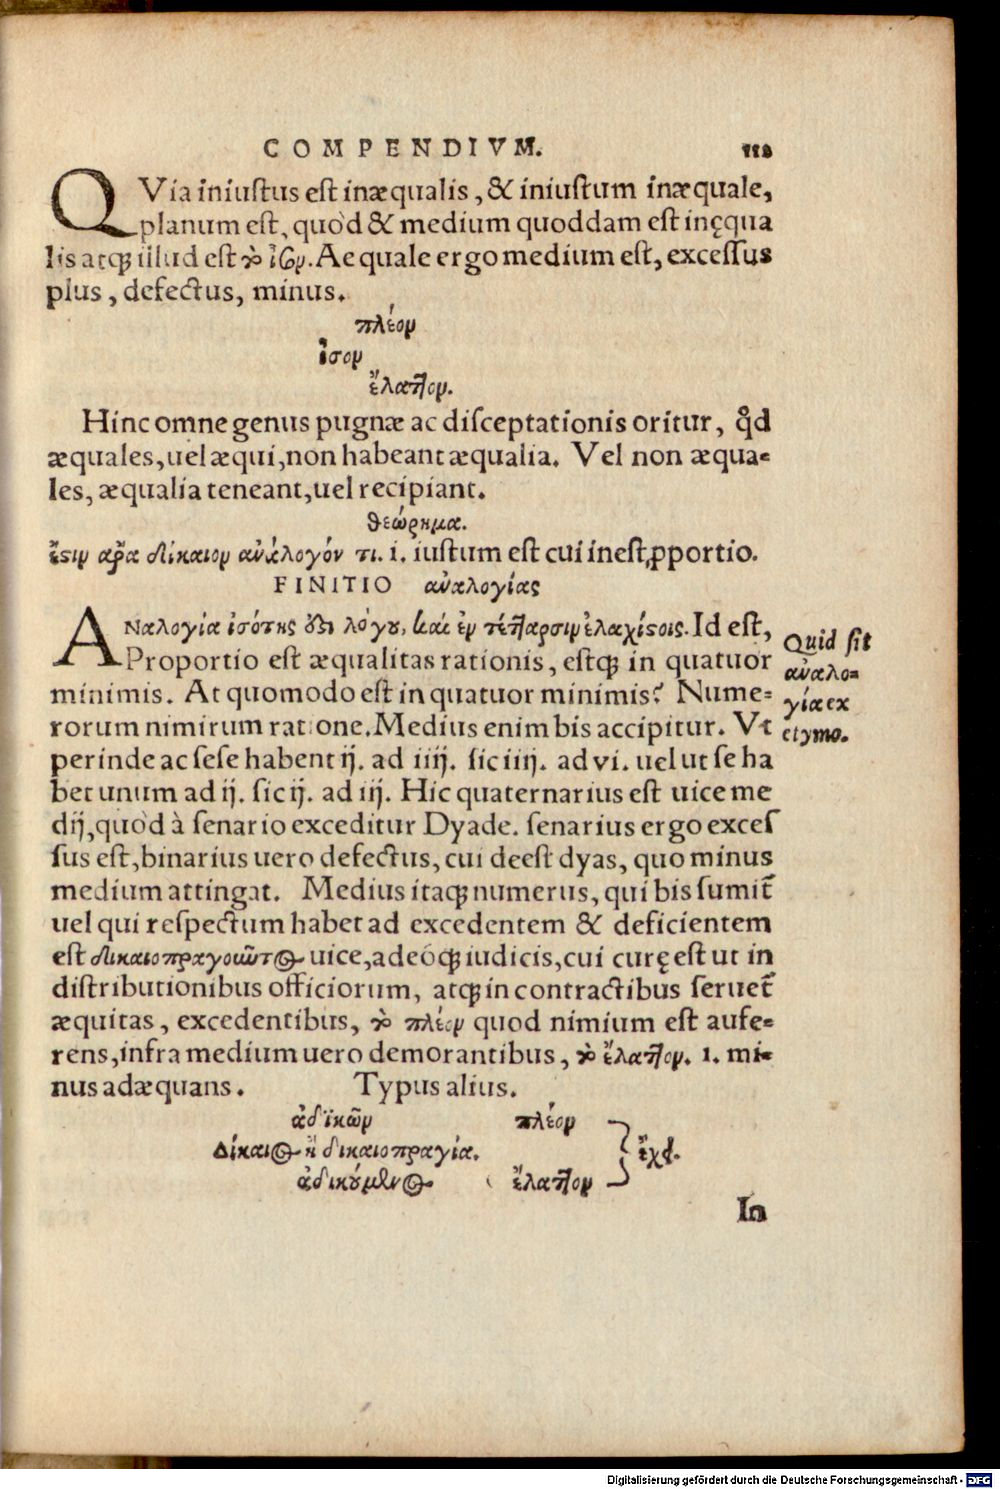 COMPENDIVM. 112
QVia iniustus est inæqualis, & iniustum inæquale,
planum est, quòd & medium quoddam est inęqua
lis atq́; illud est τὸ ἴσον. Aequale ergo medium est, excessus
plus, defectus, minus.
πλέον
ἴσον
ἔλαττον.
Hinc omne genus pugnæ ac disceptationis oritur, q̃d
æquales, uel æqui, non habeant æqualia. Vel non æqua-
les, æqualia teneant, uel recipiant.
θεώρημα.
ἔστιν ἄρα δίκαιον ἀνάλογόν τι. i. iustum est cui inest ꝓportio.
FINITIO ἀναλογίας
ΑΝαλογία ἰσότης ὅτι λόγου, καὶ ἐν τέτταρσιν ἐλαχίστοις. Id est,
Proportio est æqualitas rationis, estq́; in quatuor
minimis. At quomodo est in quatuor minimis? Nume-
rorum nimirum ratione. Medius enim bis accipitur. Vt
perinde ac sese habent ij. ad iiij. sic iiij. ad vi. uel ut se ha
bet unum ad ij. sic ij. ad iij. Hic quaternarius est uice me
dij, quòd à senario exceditur Dyade. senarius ergo exces
sus est, binarius uero defectus, cui deest dyas, quo minus
medium attingat. Medius itaq́; numerus, qui bis sumit̃
uel qui respectum habet ad excedentem & deficientem
est δικαιοπραγοῦντος uice, adeóq́; iudicis, cui curę est ut in
distributionibus officiorum, atq́; in contractibus seruet̃
æquitas, excedentibus, τὸ πλέον quod nimium est aufe-
rens, infra medium uero demorantibus, τὸ ἔλαττον. i. mi-
nus adæquans. Typus alius.
ἀδικῶν πλέον
Δίκαιος ἢ δικαιοπραγία. ἔχει.
ἀδικούμενος ἔλαττον
In
Quid sit
ἀναλο-
γία ex
etymo.
Digitalisierung gefördert durch die Deutsche Forschungsgemeinschaft - DFG